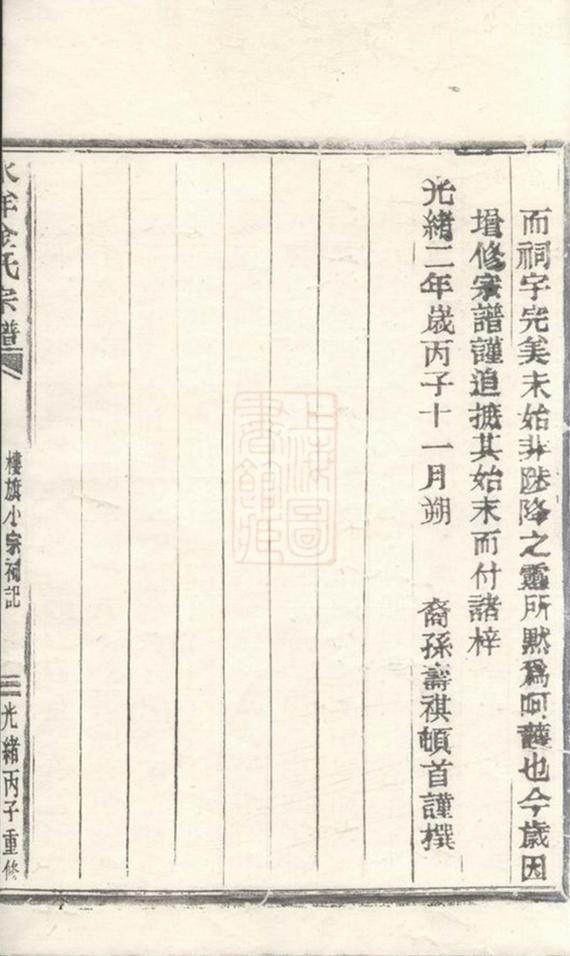 而祠宇完美未始非陟降之靈所默爲呵護也今歲因
增修宗譜謹追摭其始末而付諸梓
光緒二年歲丙子十一月朔 裔孫壽祺頓首謹撰
上海圖書館藏
金氏宗譜
樓旗小宗祠記
三
光緒丙子重修